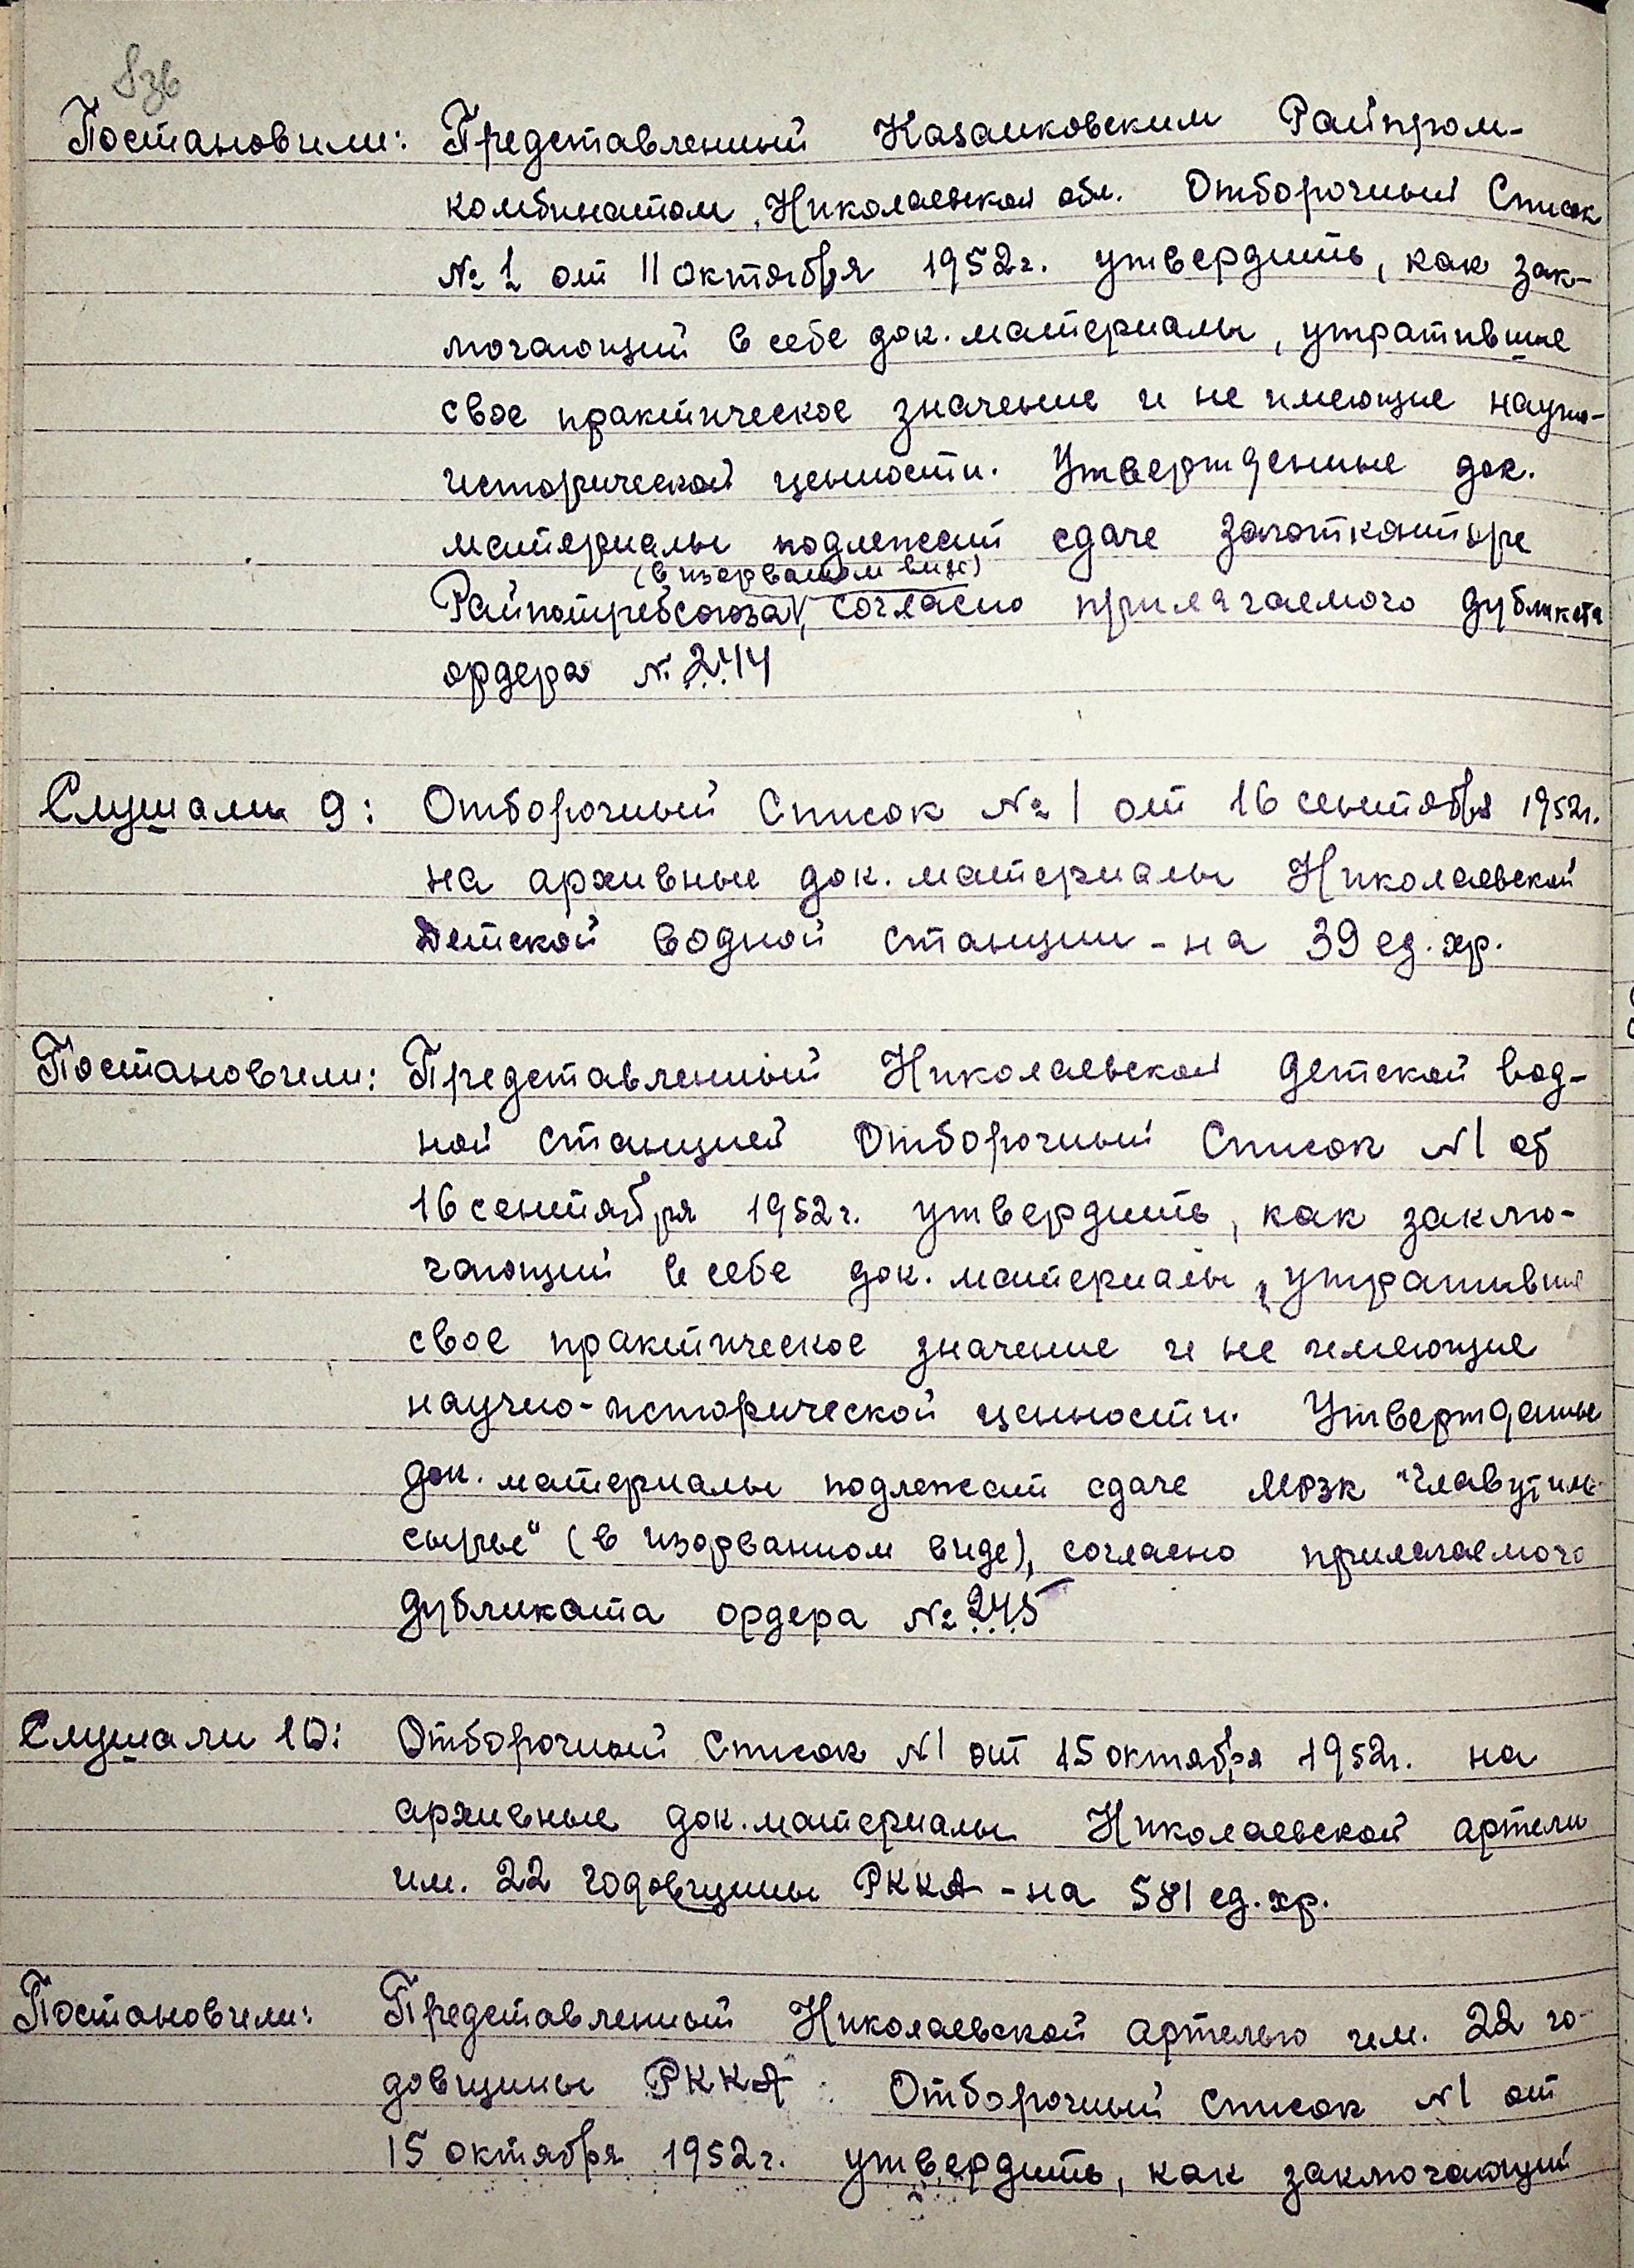 Постановили: Представленный Казанковским Райпром-
комбинатом, Николаевской обл. Отборочный Список
№ 1 от 11 октября 1952г. утвердить, как зак-
лючающий в себе док. материалы, утратившие
свое практическое значение и не имеющие научно-
исторической ценности. Утвержденные док.
материалы подлежат сдаче Заготконторе
(в изорванном виде)
Райпотребсоюза, согласно прилагаемого дубликата
ордера № 244
Слушали 9: Отборочный Список № 1 от 16 сентября 1952г.
на архивные док. материалы Николаевской
Детской водной станции - на 39 ед. хр.
Постановили: Представленный Николаевской детской вод-
ной станцией Отборочный Список №1 об
16 сентября 1952г. утвердить, как заклю-
чающий в себе док. материалы, утратившие
свое практическое значение и не имеющие
научно-исторической ценности. Утвержденные
док. материалы подлежат сдаче МОЗК "Главутиль-
сырье" (в изорванном виде), согласно прилагаемого
дубликата ордера № 245
Слушали 10: Отборочный Список №1 от 15 октября 1952г. на
архивные док. материалы Николаевской артели
им. 22 годовщины РККА - на 581 ед. хр.
Постановили: Представленный Николаевской артелью им. 22 го-
довщины РККА Отборочный Список №1 от
15 октября 1952г. утвердить, как заключающий